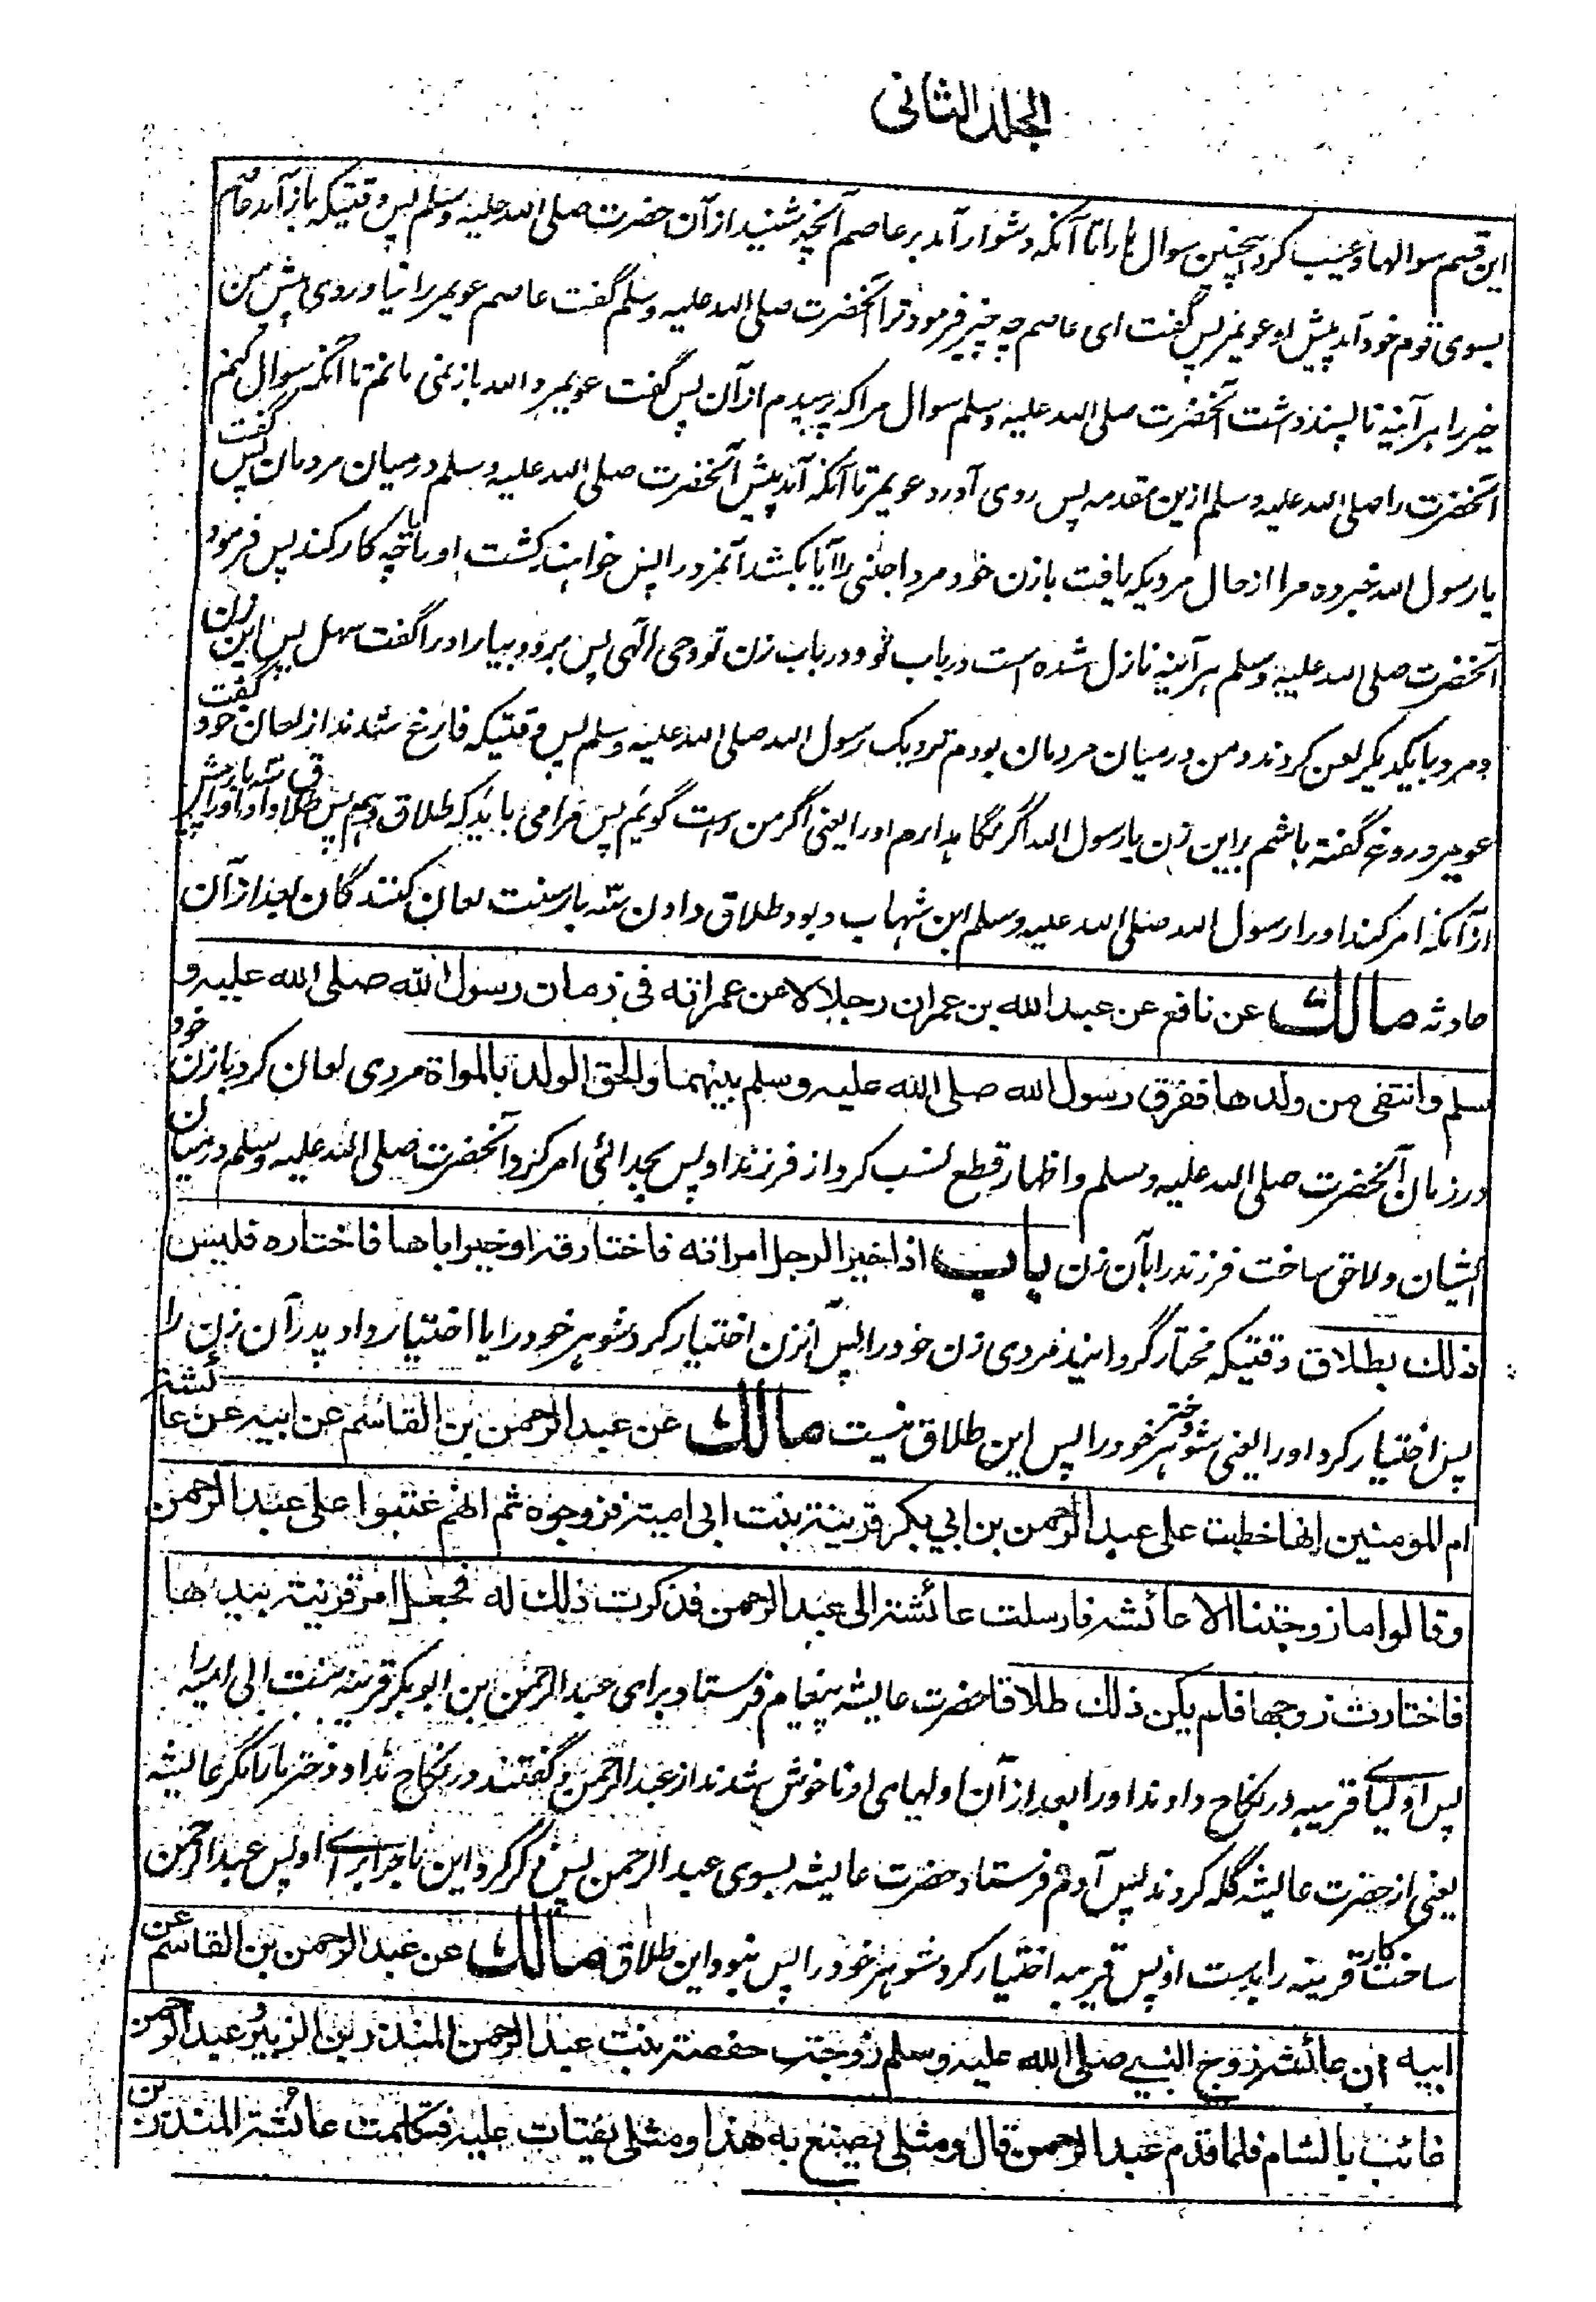 الجلد الثانی
این قسم سوالها و عیب کرد همچنین سوال ها را تا آنکه دشوار آمد بر عاصم آنچه شنید از آن حضرت صلی الله علیه وسلم پس وقتیکه باز آمد عاصم
بسوی قوم خود آمد پیش او عویمر پس گفت ای عاصم چه چیز فرمود ترا آنحضرت صلی الله علیه وسلم گفت عاصم عویمر را نیاوردی پیش من
خیر را هر آئینه ناپسند داشت آنحضرت صلی الله علیه وسلم سوال مرا که پرسیدم از آن پس گفت عویمر والله باز نمی مانم تا آنکه سوال کنم
آنحضرت را صلی الله علیه وسلم ازین مقدمه پس روی آورد عویمر تا آنکه آمد پیش آنحضرت صلی الله علیه وسلم در میان مردمان پس گفت
یا رسول الله خبر ده مرا از حال مردیکه یافت با زن خود مرد اجنبی را آیا بکشد آنمرد را پس خواهند کشت او را یا چه کار کند پس فرمود
آنحضرت صلی الله علیه وسلم هر آئینه نازل شده است در باب تو و در باب زن تو وحی الهی پس برو و بیار او را گفت سهل پس این زن
و مرد با یکدیگر لعن کردند و من درمیان مردمان بودم نزدیک رسول الله صلی الله علیه وسلم پس وقتیکه فارغ شدند از لعان خود گفت
عویمر دروغ گفته باشم بر این زن یا رسول الله اگر نگاهدارم او را یعنی اگر من راست گویم پس مرا می باید که طلاق دهم پس طلاق داد او را سه بار پیش
از آنکه امر کند او را رسول الله صلی الله علیه وسلم ابن شهاب و بود طلاق دادن سه بار سنت لعان کنندگان بعد از آن
حادثه مالك عن نافع عن عبد الله بن عمر ان رجلا لاعن امراته فی زمان رسول الله صلی الله علیه و
سلم وانتفی من ولدها ففرق رسول الله صلی الله علیه وسلم بینهما والحق الولد بالمراة مردی لعان کرد با زن خود
در زمان آنحضرت صلی الله علیه وسلم و اظهار قطع نسب کرد از فرزند او پس بجدائی امر کرد آنحضرت صلی الله علیه وسلم درمیان
ایشان ولاحق ساخت فرزند را بآن زن باب اذا خیر الرجل امراته فاختارته او خیر اباها فاختاره فلیس
ذلك بطلاق وقتیکه مختار گرداند مردی زن خود را پس آنزن اختیار کرد شوهر خود را یا اختیار داد پدر آن زن را
پس اختیار کرد او را یعنی شوهر دختر خود را پس این طلاق نیست مالك عن عبد الرحمن بن القاسم عن ابیه عن عائشة
ام المومنین انها خطبت علی عبد الرحمن بن ابی بکر قریبة بنت ابی امیة فزوجوه ثم انهم عتبوا علی عبد الرحمن
وقالوا ما زوجنا الا عائشة فارسلت عائشة الی عبد الرحمن فذکرت ذلك له فجعل امر قریبة بیدها
فاختارت زوجها فلم یکن ذلك طلاقا حضرت عایشه پیغام فرستاد برای عبد الرحمن بن ابوبکر قریبه بنت ابی امیه را
پس اولیای قریبه در نکاح دادند او را بعد از آن اولیای او ناخوش شدند از عبد الرحمن و گفتند در نکاح نداد دختر ما را مگر عایشه
یعنی از حضرت عایشه گله کردند پس آدم فرستاد حضرت عایشه بسوی عبد الرحمن پس ذکر کرد این ماجرا برای او پس عبد الرحمن
ساخت کار قریبه را بدست او پس قریبه اختیار کرد شوهر خود را پس نبود این طلاق مالك عن عبد الرحمن بن القاسم عن
ابیه ان عائشة زوج النبی صلی الله علیه وسلم زوجت حفصة بنت عبد الرحمن المنذر بن الزبیر وعبد الرحمن
غائب بالشام فلما قدم عبد الرحمن قال ومثلی یصنع به هذا ومثلی یفتات علیه فکلمت عائشة المنذر بن